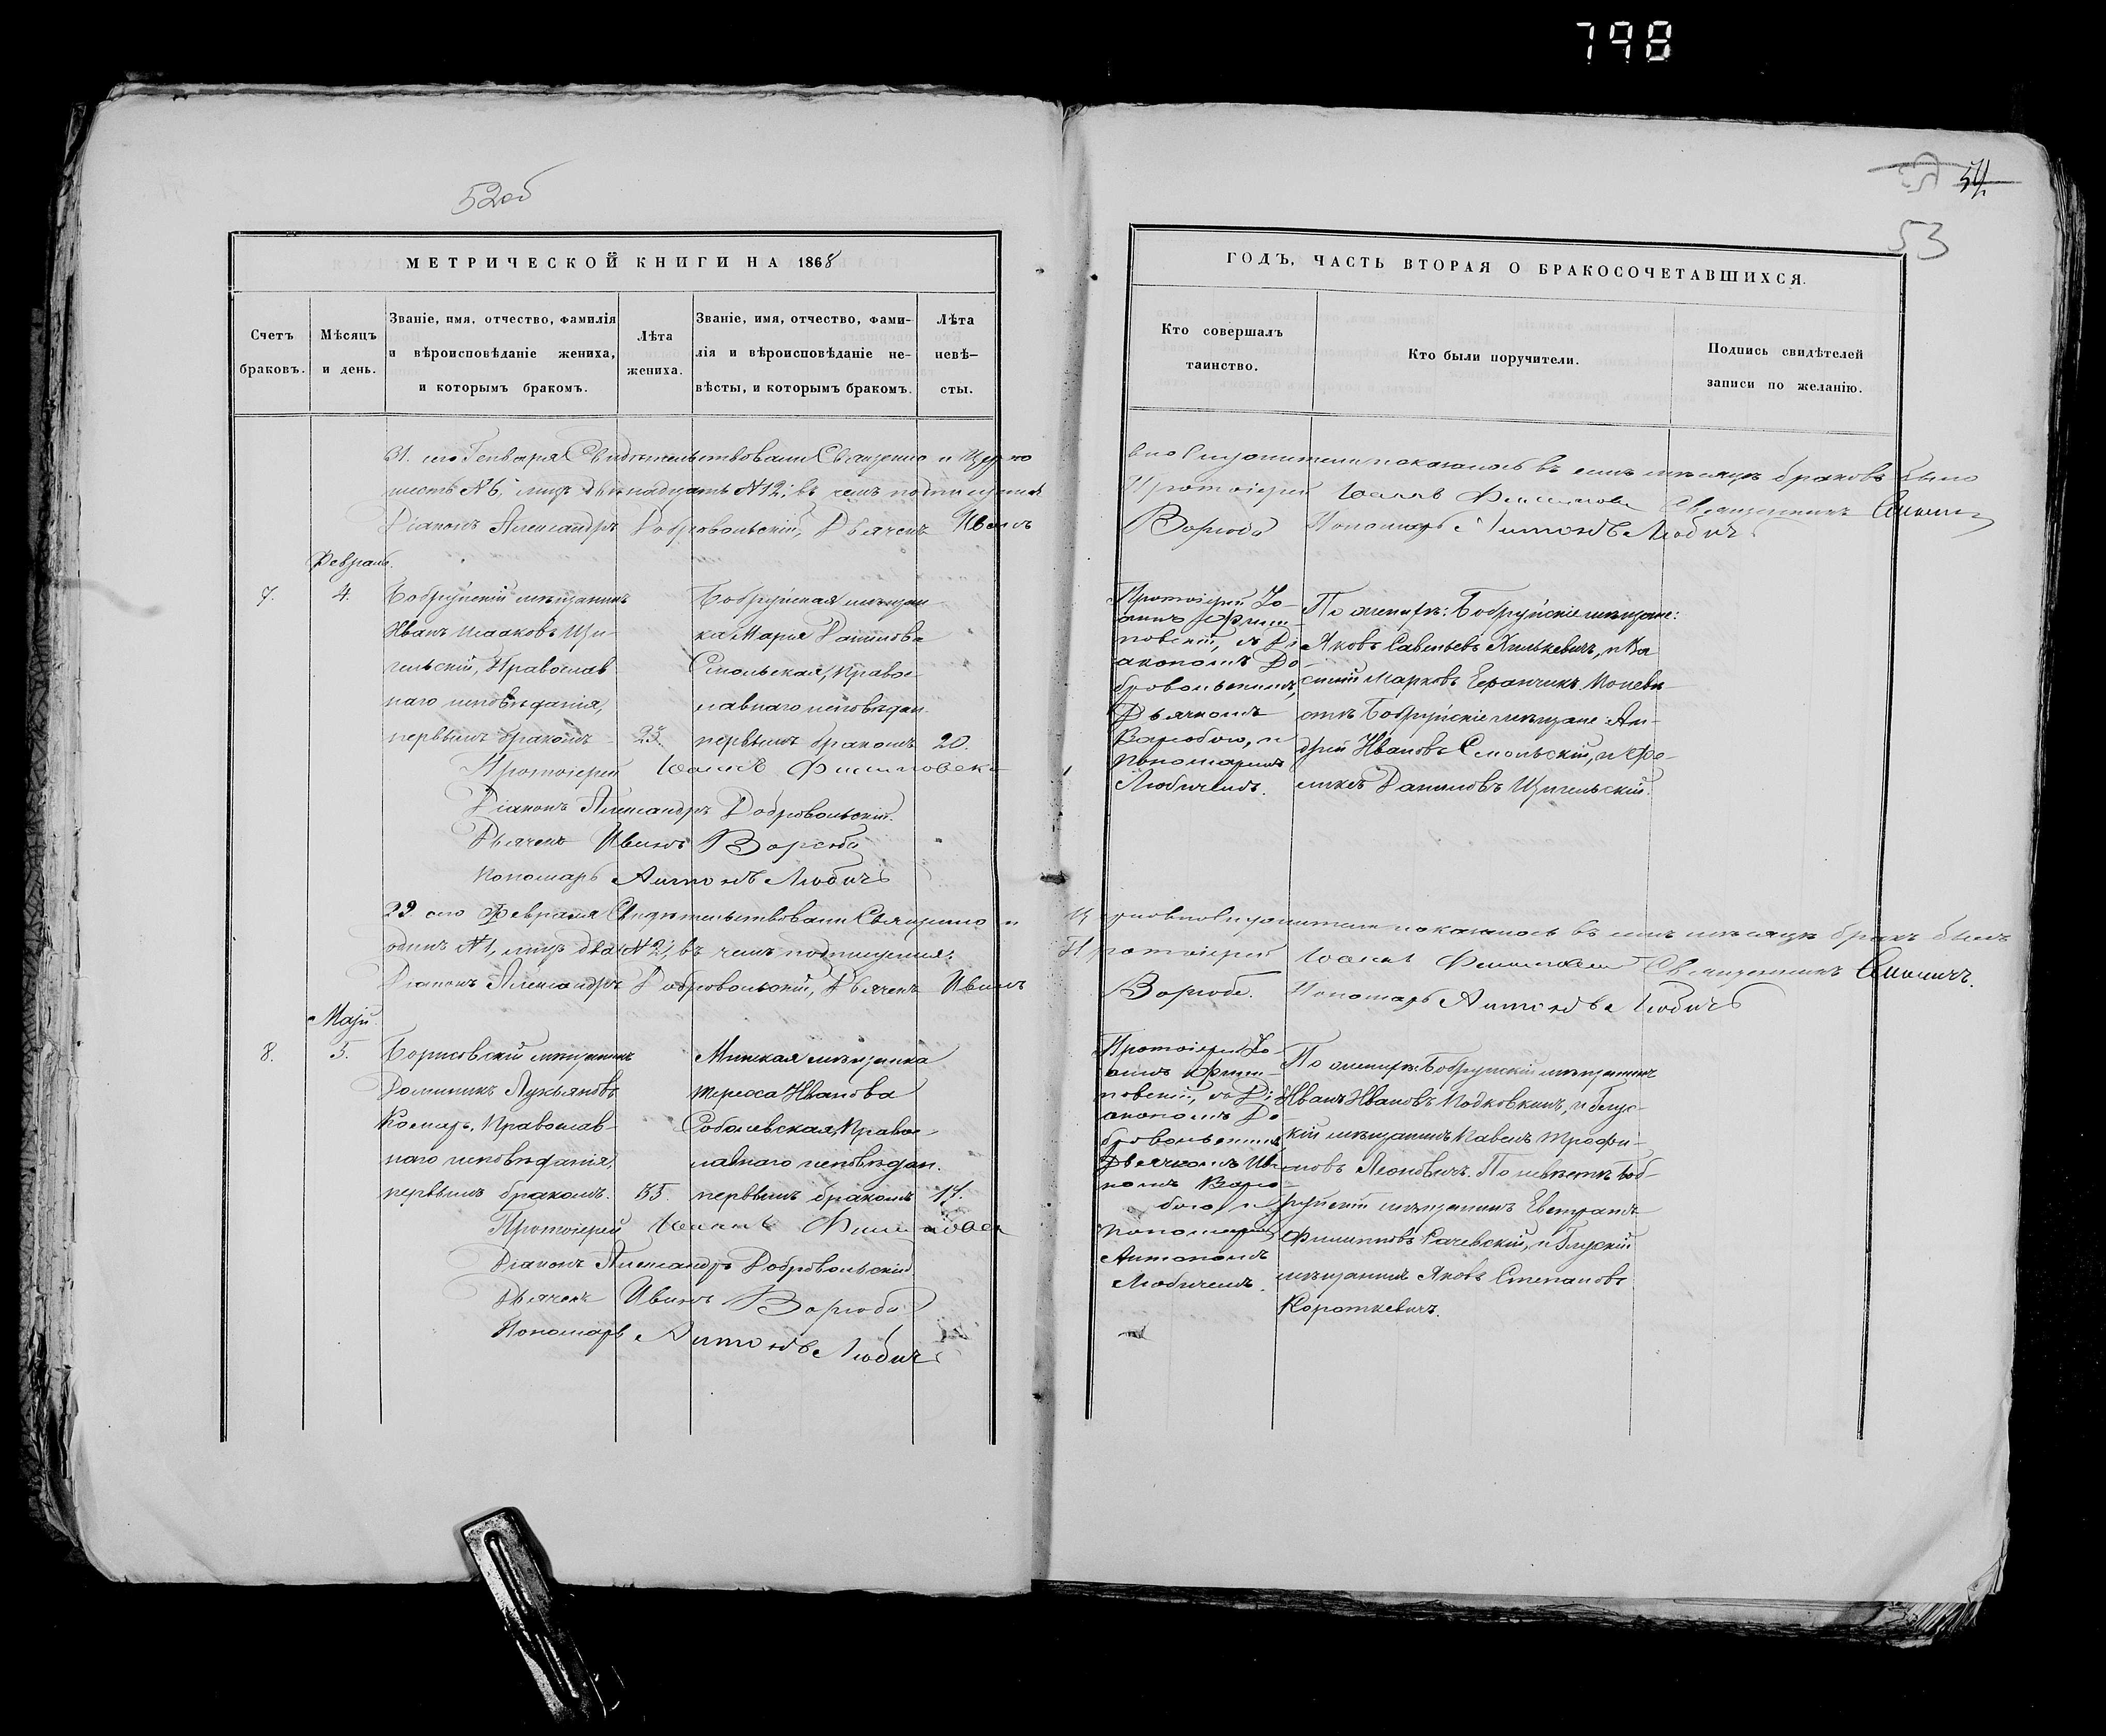 798
52об
54
53
МЕТРИЧЕСКОЙ КНИГИ НА 1868
Счетъ браковъ.
Мѣсяцъ и день.
Званіе, имя, отчество, фамилія
и вѣроисповѣданіе жениха,
и которымъ бракомъ.
Лѣта жениха.
Званіе, имя, отчество, фами-
лія и вѣроисповѣданіе не-
вѣсты, и которымъ бракомъ.
Лѣта невѣ-
сты.
31. сего Генваря Свидѣтельствовали Священно и Церко
шесть №6, лицъ двѣнадцать №12; въ чемъ подписуемся
Діаконъ Александръ Добровольскій, Дьячекъ Иванъ
Февраль.
7.
4.
Бобруйскій мѣщанинъ
Иванъ Исааковъ Щи-
гельскій, Православ
наго исповѣданія,
первымъ бракомъ
23.
Бобруйская мѣщан
ка Марія Данилова
Смольская, Правос-
лавнаго исповѣдан.
первымъ бракомъ
20.
Протоіерей Іоаннъ
Діаконъ Александръ Добровольскій.
Дьячекъ Иванъ Ворюба
Пономарь Антонъ Любичъ
29 сего Февраля Свидѣтельствовали Священно и
одинъ №1, лицъ два №2; въ чемъ подписуемся:
Діаконъ Александръ Добровольскій, Дьячекъ Иванъ
Маій
8.
5.
Борисовскій мѣщанинъ
Доминикъ Лукьяновъ
Комаръ, Православ-
наго исповѣданія,
первымъ бракомъ.
35.
Минская мѣщанка
Тереса Иванова
Соболевская, Правос-
лавнаго исповѣдан.
первымъ бракомъ
17.
Протоіерей Іоаннъ
Діаконъ Александръ Добровольскій
Дьячекъ Иванъ Ворюба
Пономарь Антонъ Любичъ
ГОДЪ, ЧАСТЬ ВТОРАЯ О БРАКОСОЧЕТАВШИХСЯ.
Кто совершалъ
таинство.
Кто были поручители.
Подпись свидѣтелей
записи по желанію.
вно Служители показалось въ семъ мѣсяцѣ браковъ было
Протоіерей Іоаннъ Священникъ
Ворюба Пономарь Антонъ Любичъ
Протоіерей Іо-
аннъ
повскій, съ Ді
акономъ До
бровольскимъ,
Дьячкомъ
Ворюбою, и
Пономаремъ
Любичемъ.
По женихѣ: Бобруйскіе мѣщане:
Яковъ Савельевъ Хилькевичъ, и Ва
силій Марковъ По невѣ-
стѣ Бобруйскіе мѣщане: Ан-
дрей Ивановъ Смольскій, и Фе-
ликсъ Даниловъ Щигельскій.
Церковнослужители показалось въ семъ мѣсяцѣ бракъ былъ
Протоіерей Іоаннъ Священникъ
Ворюба. Пономарь Антонъ Любичъ
Протоіерей Іо-
аннъ
повскій, съ Ді
акономъ До
бровольскимъ
Дьячкомъ Ива
номъ Ворю-
бою, и
Пономаремъ
Антономъ
Любичемъ.
По женихѣ: Бобруйскій мѣщанинъ
Иванъ Ивановъ Подковкинъ, и Глус-
кій мѣщанинъ Павелъ Трофи-
мовъ Леоновичъ. По невѣстѣ Боб-
руйскій мѣщанинъ Евстратъ
Филипповъ Рачевскій, и Глускій
мѣщанинъ Яковъ Степановъ
Короткевичъ.